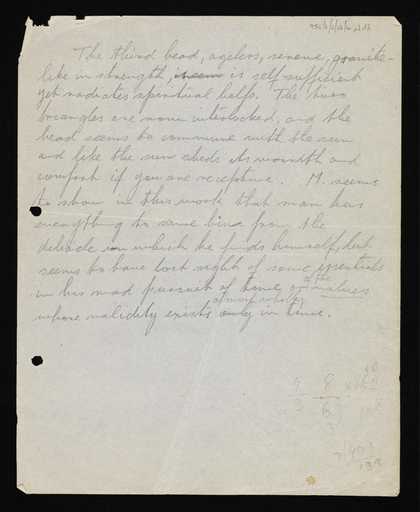 The third head, ageless, serene, granite-
like in strength, is self sufficient
yet radiates spiritual help. The two
triangles are now interlocked, and the
head seems to commune with the sun
and like the sun sheds its warmth and
comfort if you are receptive. M. seems
to show in this work that man has
everything to save him from the
debacle in which he finds himself, but
seems to have lost sight of some essentials
in his mad pursuit of time or values
of the
of most which
whose validity exists only in time.